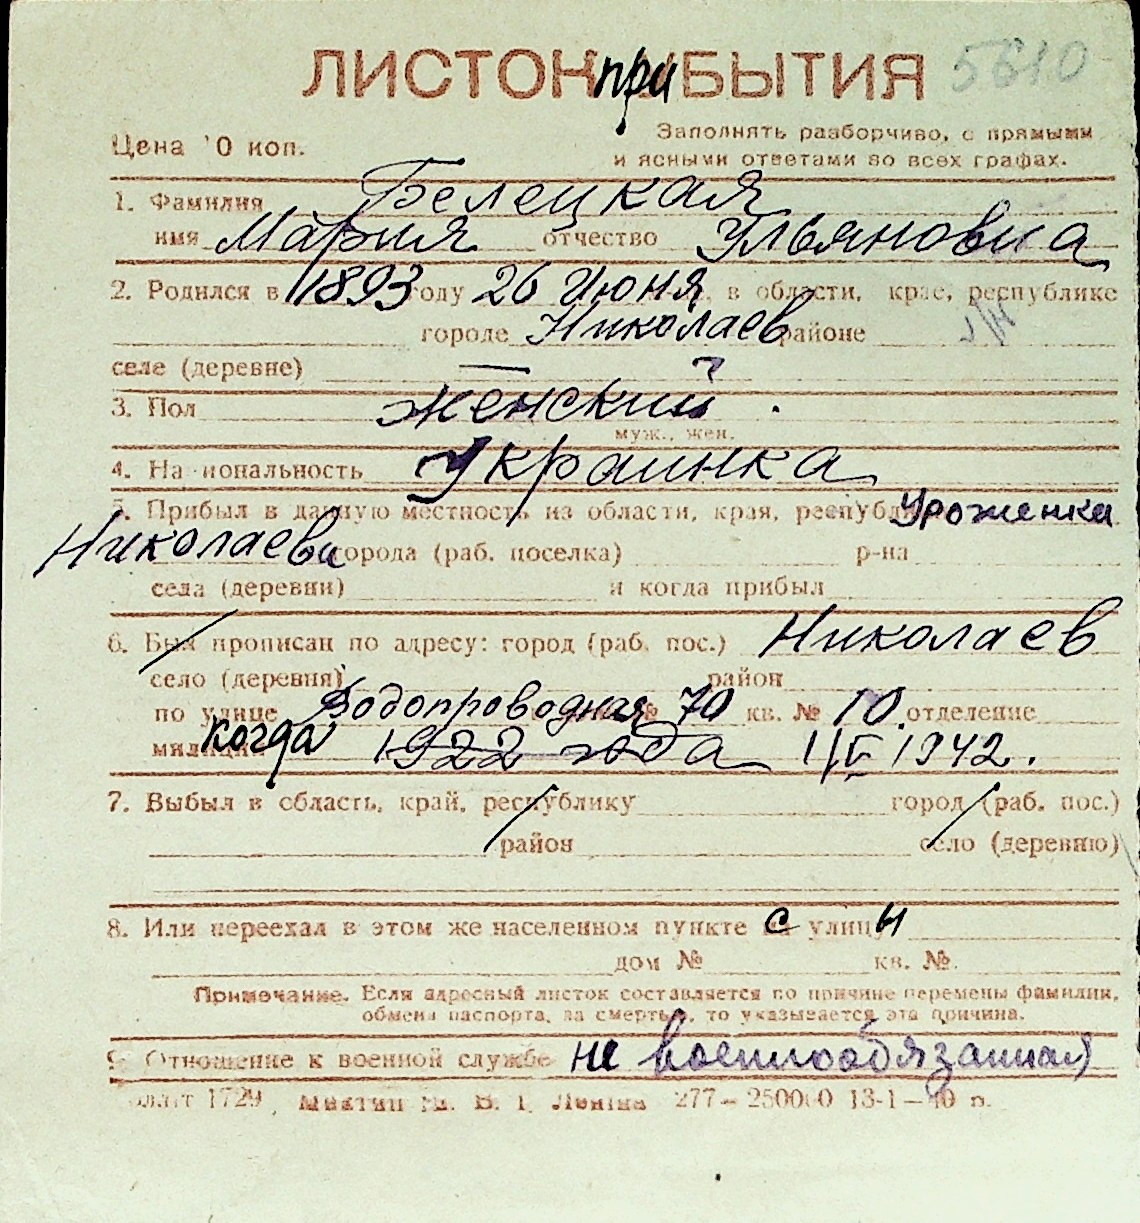 ЛИСТОК приБЫТИЯ 5610
Цена 10 коп. Заполнять разборчиво, с прямыми
и ясными ответами во всех графах.
1. Фамилия Белецкая
имя Мария отчество Ульяновна
2. Родился в 1893 году 26 Июня в области, крае, республике
городе Николаев районе
селе (деревне) —
3. Пол женский.
муж., жен.
4. Национальность Украинка
5. Прибыл в данную местность из области, края, республ Уроженка
Николаева города (раб. поселка) р-на
села (деревни) и когда прибыл
6. Был прописан по адресу: город (раб. пос.) Николаев
село (деревня) район
по улице Водопроводная № 70 кв. № 10 отделение
милиции когда 1922 года 1942.
7. Выбыл в область, край, республику город (раб. пос.)
район село (деревню)
8. Или переехал в этом же населенном пункте с улицы
дом № кв. №
Примечание. Если адресный листок составляется по причине перемены фамилии,
обмена паспорта, за смертью, то указывается эта причина.
9. Отношение к военной службе не военнообязанная
1729 В. І. Леніна 277—250000 13-1—40 р.